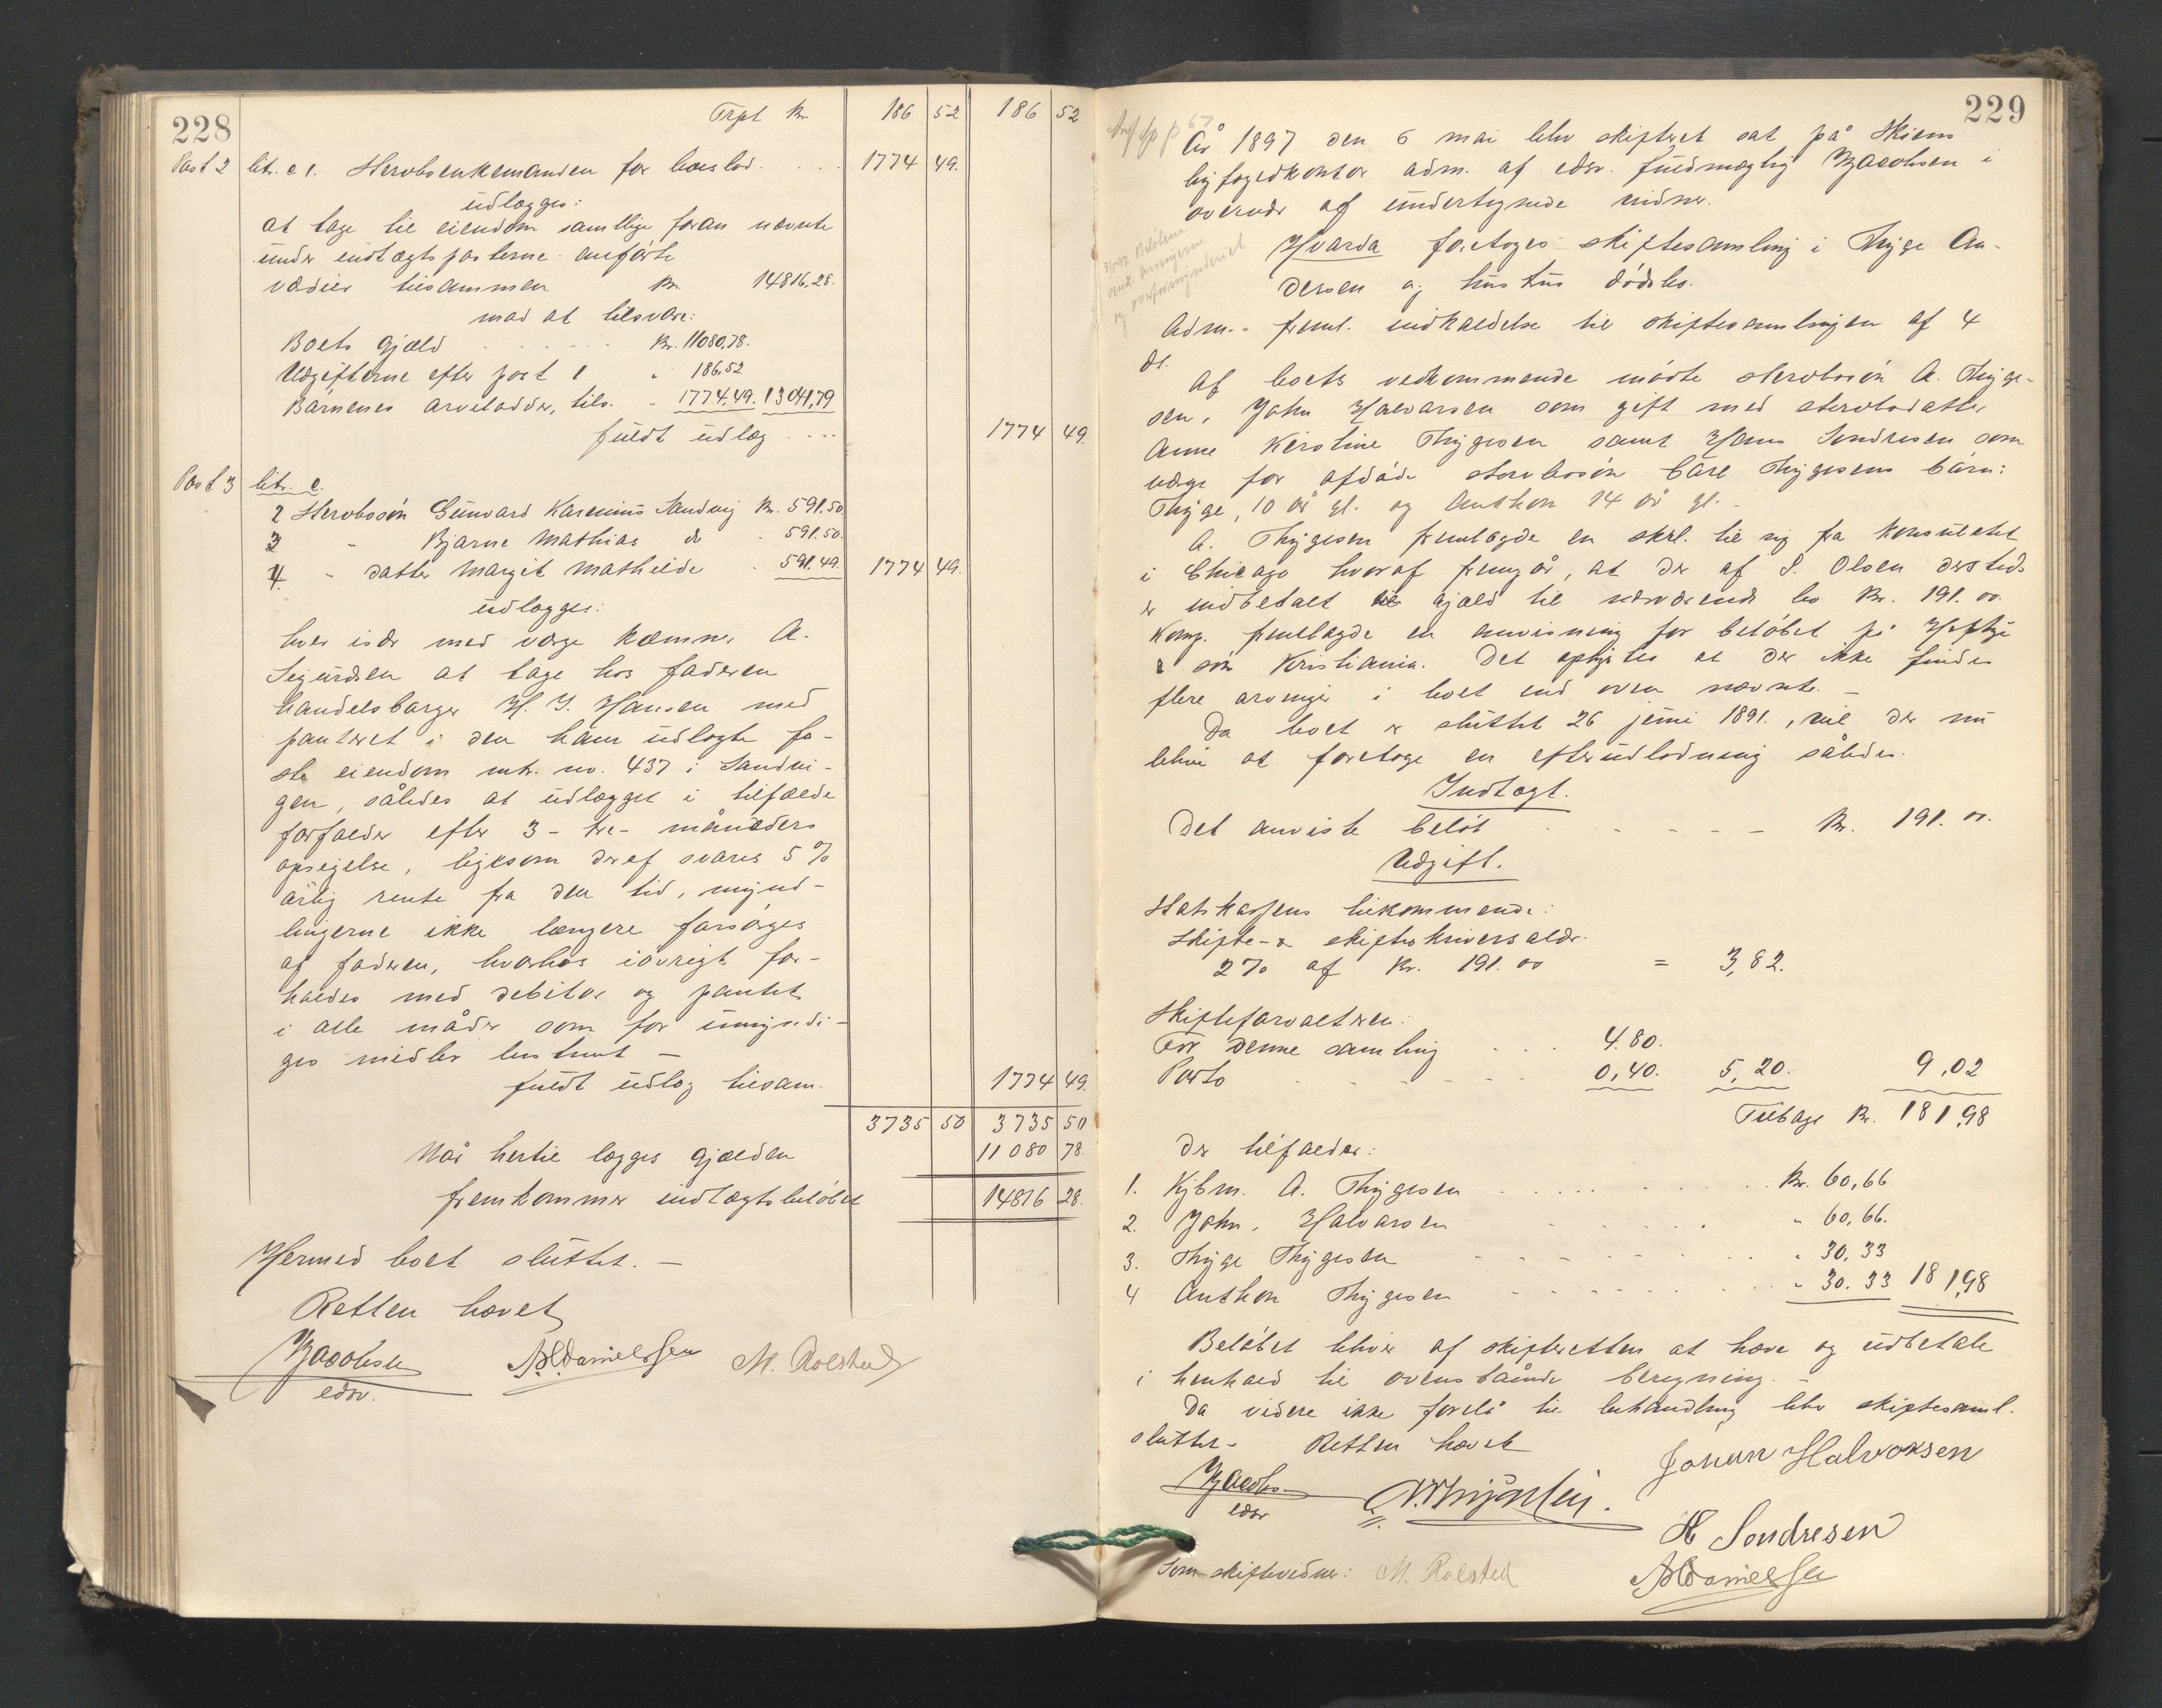 228
Trpt Kr. 186 52 186 52
Post 2 litr. c 1. Sterboenkemanden for boeslod . . . 1774 49.
udlægges:
at tage til eiendom samtlige foran nævnte
under indtægtsposterne anførte
værdier tilsammen Kr. 14816,28.
mod at tilsvare:
Boets gjæld . . . . . . Kr. 11080,78.
Udgifterne efter post 1 " 186,52
Børnenes arvelodder, tils. " 1774.49. 13041,79
fuldt udlæg . . . . 1774 49.
Post 3 litr. c.
2 Sterbosøn Gunvard Karenius Sandvig Kr. 591.50.
3 " Bjarne Mathias do " 591.50.
4. " datter Margit Mathilde " 591.49. 1774 49.
udlægges:
hver især med værge kæmner A.
Sigurdsen at tage hos faderen
handelsborger H. J. Hansen med
panteret i den ham udlagte fa-
ste eiendom mtr. no. 437 i Sandvi-
gen, således at udlægget i tilfælde
forfalder efter 3 - tre - måneders
opsigelse, ligesom deraf svares 5 %
årlig rente fra den tid, mynd-
lingerne ikke længere forsørges
af faderen, hvorhos iøvrigt for-
holdes med debitor og pantet
i alle måder som for umyndi-
ges midler bestemt —
fuldt udlæg tilsam. 1774 49.
3735 50 3735 50
Når hertil lægges gjælden 11080 78.
fremkommer indtægtsbeløbet 14816 28.
Hermed boet sluttet. —
Retten hævet
Jacobsen
edsv.
Danielssen M. Rolsted
229
År 1897 den 6 mai blev skifteret sat på Skiens
byfogedkontor adm. af edsv. fuldmægtig Jacobsen i
overvær af undertegnede vidner.
Hvorda foretoges skiftesamling i Thyge An-
dersen og hustrus dødsbo.
Adm. freml. indkaldelse til skiftesamlingen af 4
ds.
Af boets vedkommende mødte sterbosøn A. Thyge-
sen, John Halvorsen som gift med sterbodatter
Anne Kirstine Thygesen samt Hans Sondresen som
værge for afdøde sterbosøn Carl Thygesens børn:
Thyge, 10 år gl. og Anthon 14 år gl. -
A. Thygesen fremlagde en skrl. til sig fra konsulatet
i Chicago hvoraf fremgår, at der af S. Olsen dersteds
er indbetalt gjæld til nærværende bo Kr. 191.00.
Komp. fremlagde en anvisning for beløbet på Heftye
& søn Kristiania. Det oplystes at der ikke findes
flere arvinger i boet end oven nævnte. —
Da boet er sluttet 26 juni 1891., vil der nu
blive at foretage en efterudlodning således.
Indtægt.
Det anviste beløb . . . . . Kr. 191.00.
Udgift.
Statskassens tilkommende:
Skifte- & skifteskriversalær.
2% af Kr. 191.00 = 3,82.
Skifteforvalteren:
For denne samling . . . 4.80.
Porto . . . . . 0,40. 5,20. 9,02
Tilbage Kr. 181,98
Der tilfalder:
1. Kjbm. A. Thygesen . . . . . . Kr. 60,66
2. John. Halvorsen . . . . " 60,66.
3. Thyge Thygesen . . . . . " 30,33
4 Anthon Thygesen . . . . . " 30.33 181,98
Beløbet bliver af skifteretten at hæve og udbetale
i henhold til ovenstående beregning. —
Da videre ikke forelå til behandling blev skiftesaml.
sluttet. Retten hævet
Johan Halvorsen
Jacobsen
edsv
A. Thygesen.
H Sondresen
Som skiftevidner: M. Rolsted Danielssen